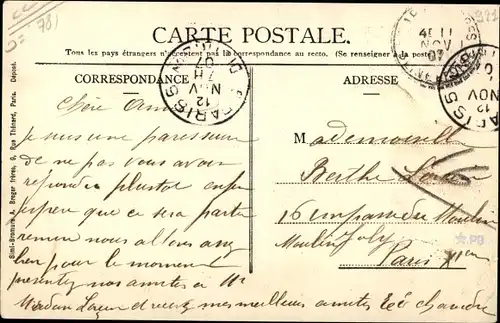 CARTE POSTALE.
Tous les pays étrangers n'acceptent pas la correspondance au recto. (Se renseigner à la poste)
CORRESPONDANCE
ADRESSE
Chère Amie
Je suis une paresseuse
de ne pas vous avoir
répondu plustot enfin
espérer que ce sera partie
remise nous allons assez
bien pour le moment
présentez nos amitiés à Mr
et recevez mes meilleurs amitiés
Mademoiselle
Berthe
16 impasse du Moulin
Moulin Joly
Paris XIem
PARIS 5
7H
12
NOV
07
11
NOV
07
PARIS 5
12
NOV
Simi-Bromure A. Breger frères, 9, Rue Thénard, Paris. Déposé.
78)
PB